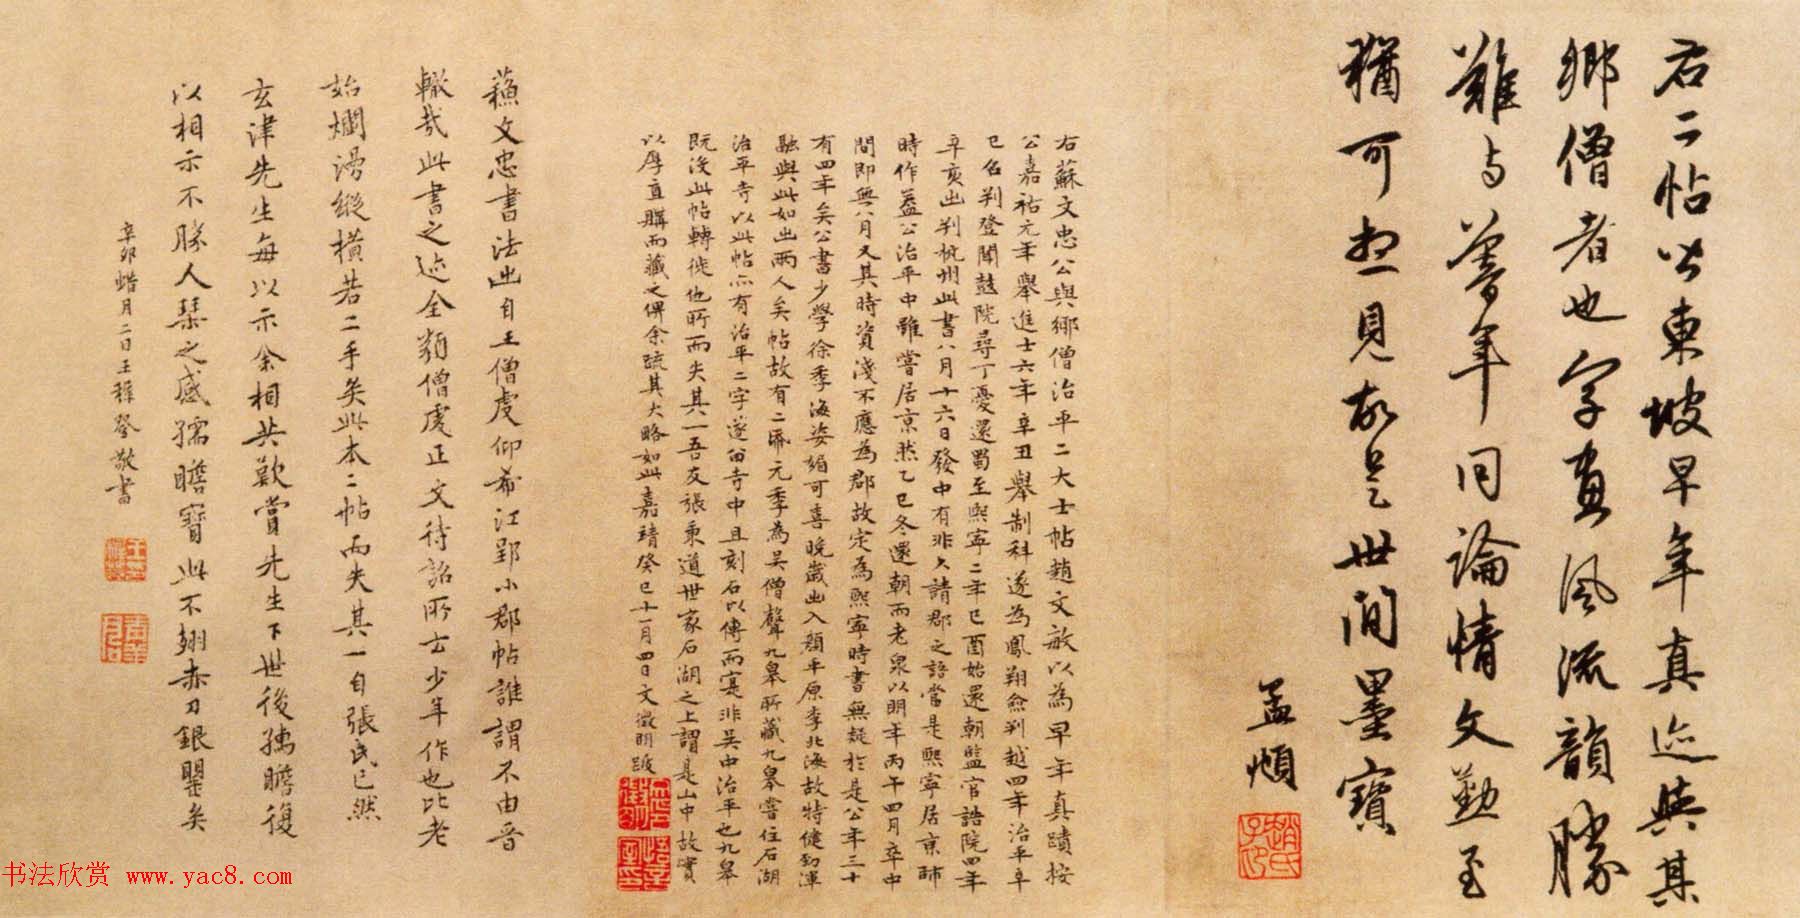 右二帖皆東坡早年真迹與其
鄉僧者也字畫風流韻勝
難与暮年同論情文勤至
猶可想見故是世間墨寶
孟頫
右蘇文忠公與鄉僧治平二大士帖趙文敏以為早年真蹟按
公嘉祐元年舉進士六年辛丑舉制科遂為鳳翔僉判越四年治平辛
巳召判登聞鼓院尋丁憂還蜀至熙寧二年己酉始還朝監官誥院四年
辛亥出判杭州此書八月十六日發中有非久請郡之語當是熙寧居京師
時作蓋公治平中雖嘗居京然乙巳冬還朝而老泉以明年丙午四月卒中
間即無八月又其時資淺不應為郡故定為熙寧時書無疑於是公年三十
有四年矣公書少學徐季海姿媚可喜晚歲出入顏平原李北海故特健勁渾
融與此如出兩人矣帖故有二帋元季為吳僧聲九皋所藏九皋嘗住石湖
治平寺以此帖亦有治平二字遂留寺中且刻石以傳而寔非吳中治平也九皋
既沒此帖轉徙他所而失其一吾友張秉道世家石湖之上謂是山中故實
以厚直購而藏之俾余疏其大略如此嘉靖癸巳十一月四日文徵明跋
蘇文忠書法出自王僧虔仰希江郢小郡帖誰謂不由晉
轍哉此書之迹全類僧虔正文待詔所云少年作也比老
始爛漫縱橫若二手矣此本二帖而失其一自張氏已然
玄津先生每以示余相共歎賞先生下世後孺瞻復
以相示不勝人琴之感孺瞻寶此不翅赤刀銀瓮矣
辛卯蜡月二日王穉登敬書
书法欣赏 www.yac8.com